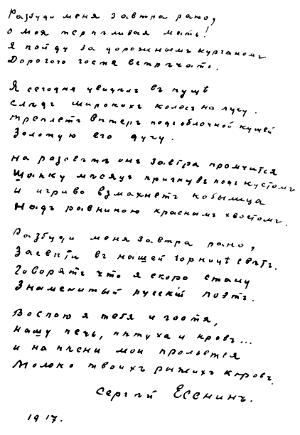 Разбуди меня завтра рано,
О моя терпеливая мать!
Я пойду за дорожным курганом
Дорогого гостя встречать.
Я сегодня увидел в пуще
След широких колес на лугу.
Треплет ветер под облачной кущей
Золотую его дугу.
На рассвете он завтра промчится
Шапку месяц пригнув под кустом
И игриво взмахнет кобылица
Над равниною красным хвостом.
Разбуди меня завтра рано,
Засвети в нашей горнице свет.
Говорят что я скоро стану
Знаменитый русский поэт.
Воспою я тебя и гостя,
Нашу печь, петуха и кров...
И на песни мои прольется
Молоко твоих рыжих коров.
Сергей Есенин.
1917.